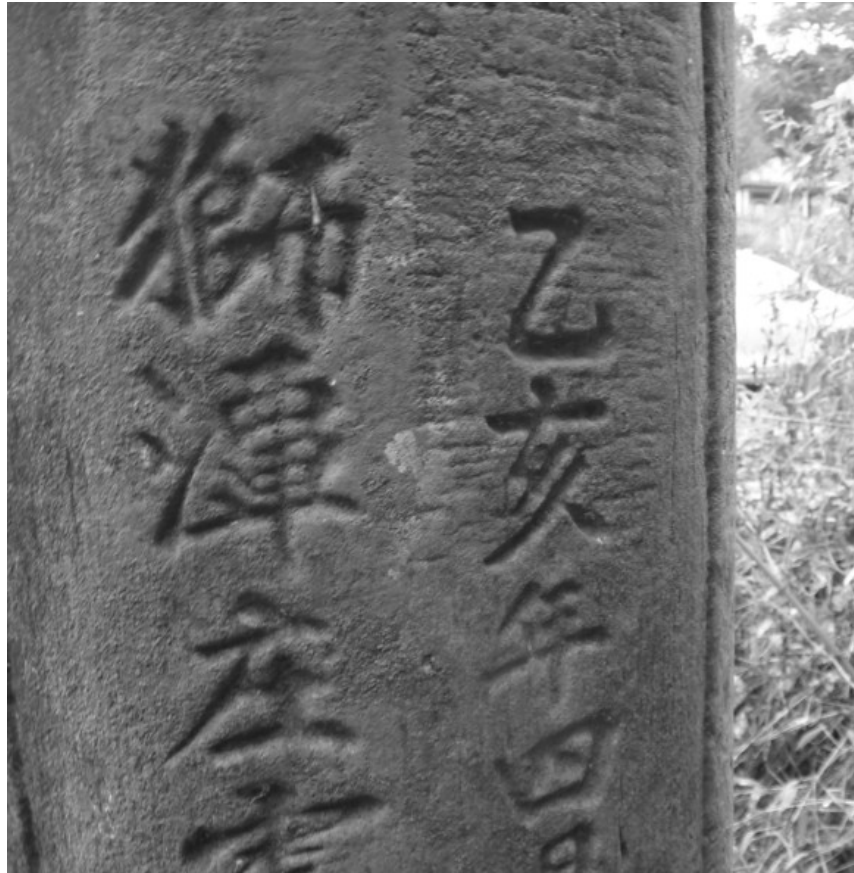 乙亥年四月
獅潭庄